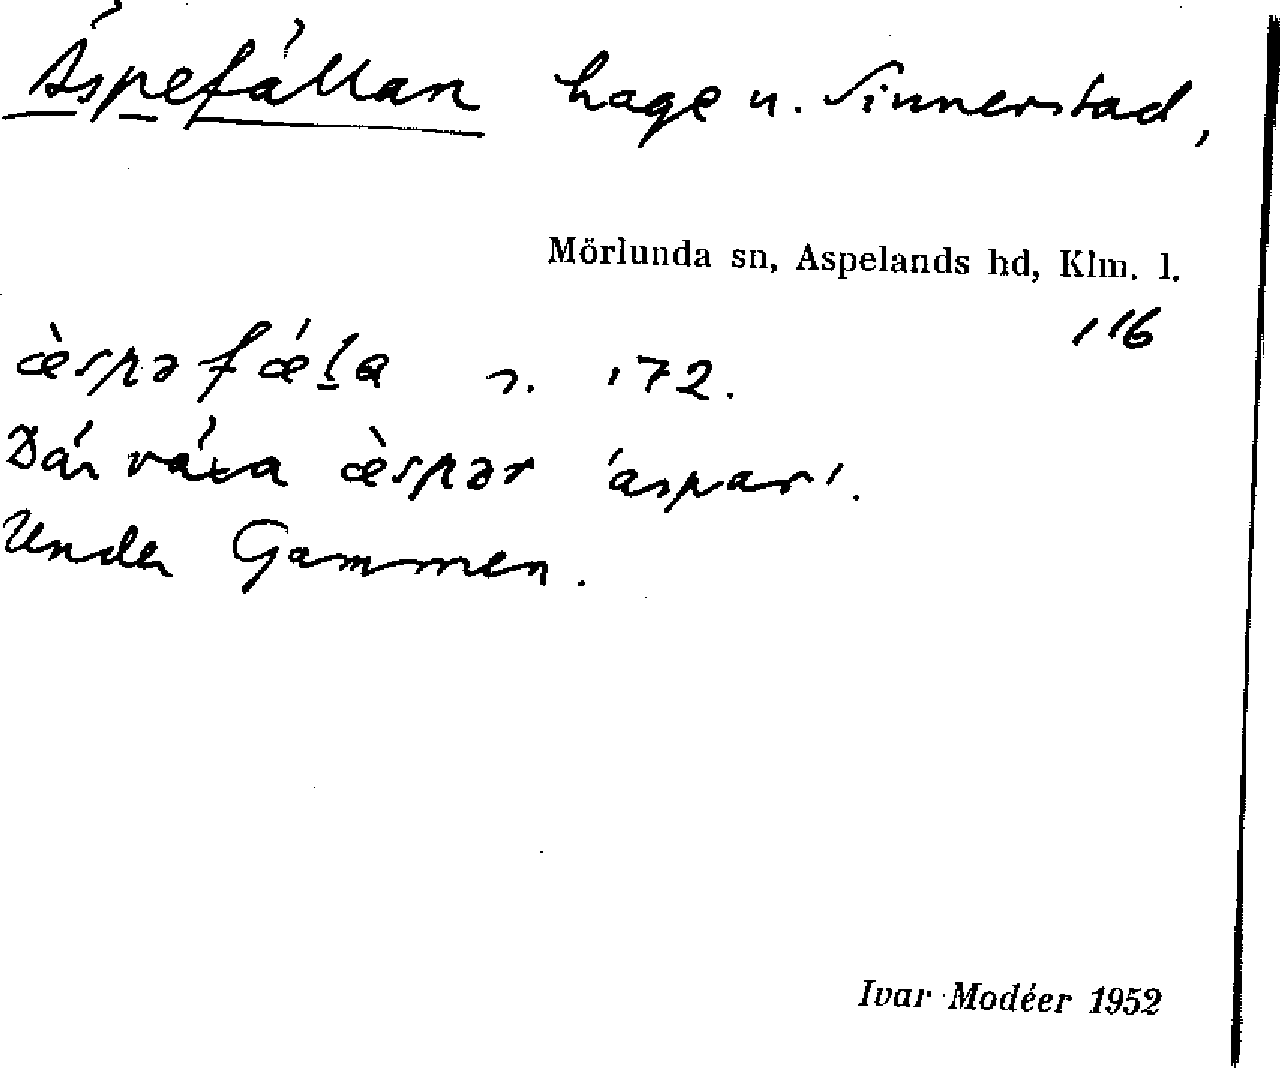 Äspefällan hage u. Sinnerstad,
Mörlunda sn, Aspelands hd, Klm. l.
116
æ̀spəfǽl̠a s. 172.
Där växa æ̀spər 'aspar'.
Under Gammen.
Ivar Modéer 1952